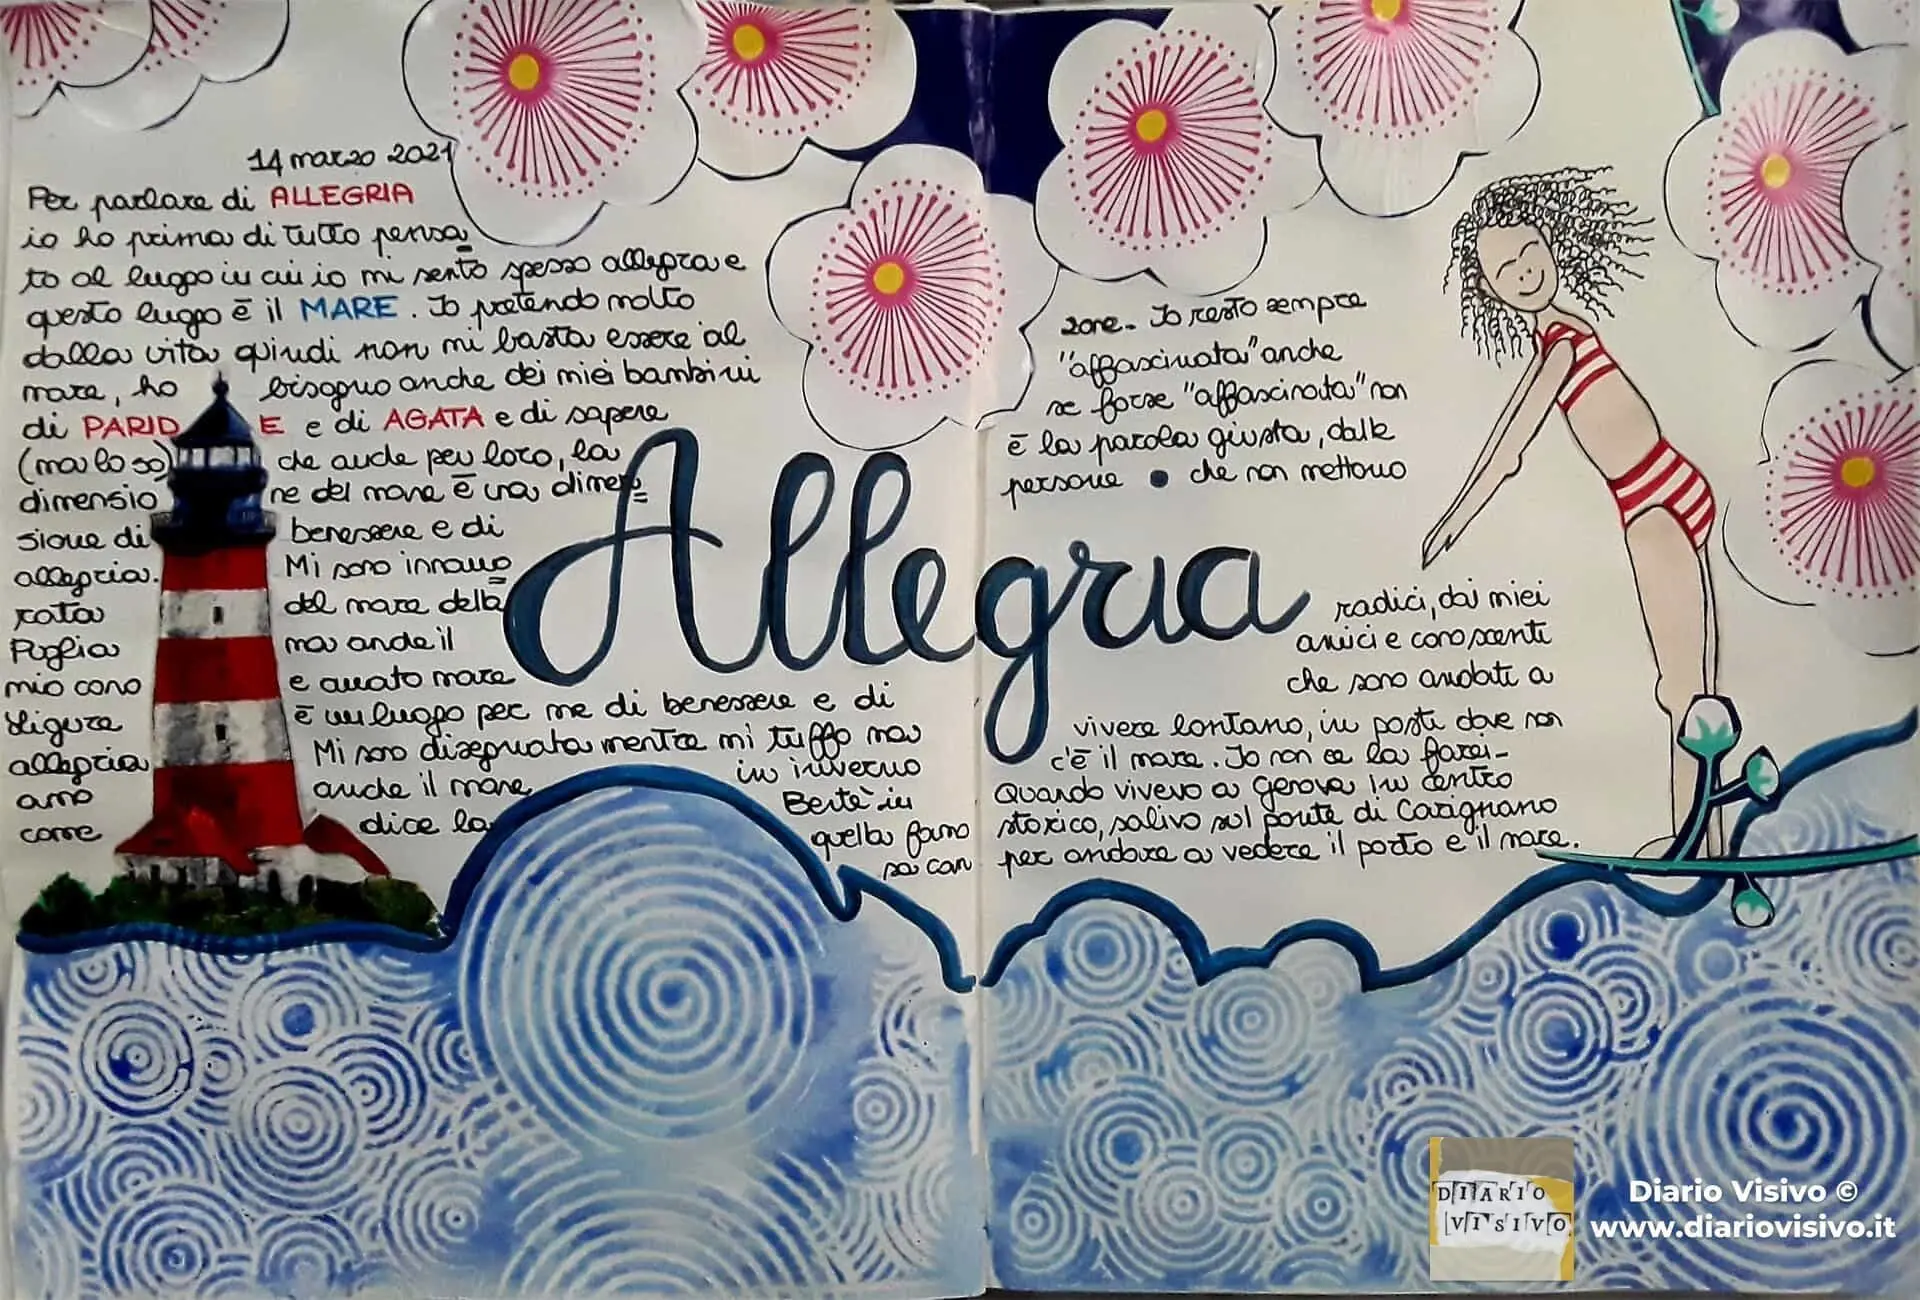 14 marzo 2021
Per parlare di ALLEGRIA
io ho prima di tutto pensa
to al luogo in cui io mi sento spesso allegra e
questo luogo è il MARE. Io pretendo molto
dalla vita quindi non mi basta essere al
mare, ho bisogno anche dei miei bambini
di PARIDE e di AGATA e di sapere
(ma lo so) che anche per loro, la
dimensione del mare è una dimen=
sione di benessere e di
allegria. Mi sono innamo=
rata del mare della
Puglia ma anche il
mio caro e amato mare
Ligure è un luogo per me di benessere e di
allegria Mi sono disegnata mentre mi tuffo ma
amo anche il mare in inverno
come dice la Bertè in
quella famo
sa can
Allegria
zone. Io resto sempre
"affascinata" anche
se forse "affascinata" non
è la parola giusta, dalle
persone che non mettono
radici, dai miei
amici e conoscenti
che sono andati a
vivere lontano, in posti dove non
c'è il mare. Io non ce la farei.
Quando vivevo a Genova in centro
storico, salivo sul ponte di Carignano
per andare a vedere il porto e il mare.
DIARIO
VISIVO
Diario Visivo ©
www.diariovisivo.it